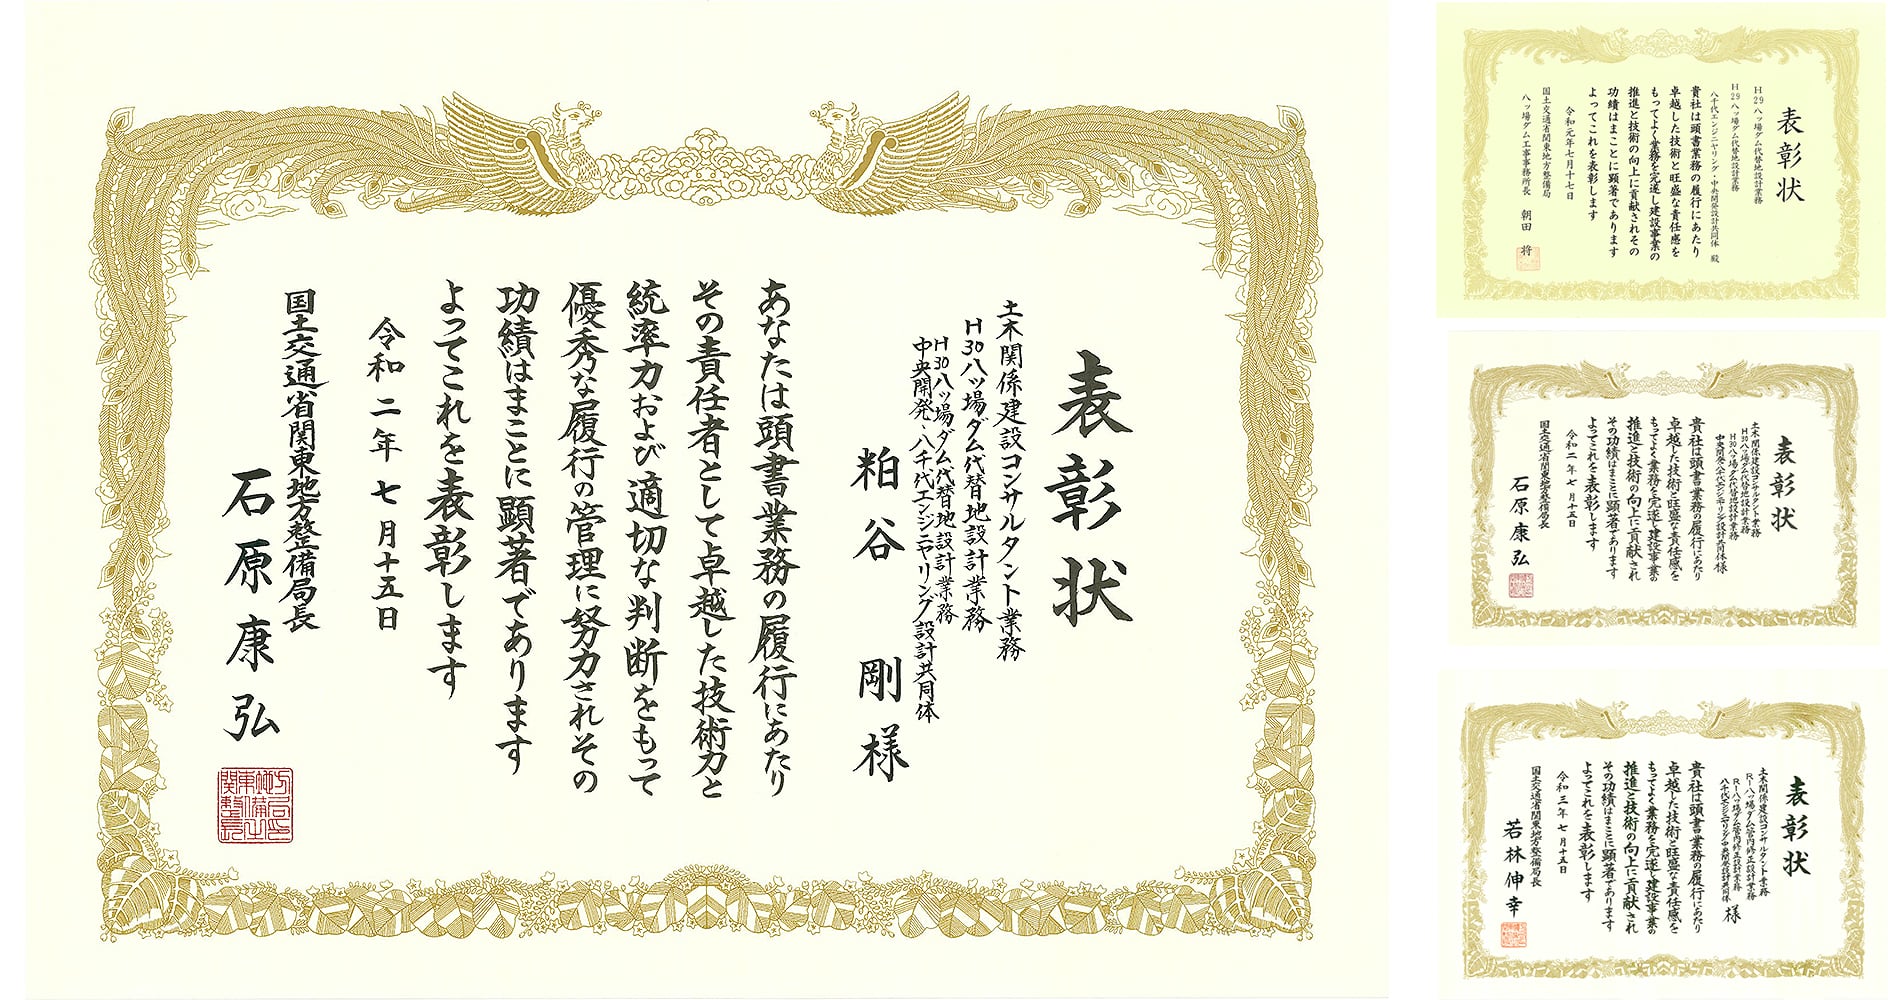 表彰状
土木関係建設コンサルタント業務
H30八ッ場ダム代替地設計業務
H30八ッ場ダム代替地設計業務
中央開発・八千代エンジニヤリング設計共同体
粕谷 剛 様
あなたは頭書業務の履行にあたり
その責任者として卓越した技術力と
統率力および適切な判断をもって
優秀な履行の管理に努力されその
功績はまことに顕著であります
よってこれを表彰します
令和二年七月十五日
国土交通省関東地方整備局長
石原康弘
表彰状
H29八ッ場ダム代替地設計業務
H29八ッ場ダム代替地設計業務
八千代エンジニヤリング・中央開発設計共同体 殿
貴社は頭書業務の履行にあたり
卓越した技術と旺盛な責任感を
もってよく業務を完遂し建設事業の
推進と技術の向上に貢献されその
功績はまことに顕著であります
よってこれを表彰します
令和元年七月十七日
国土交通省関東地方整備局
八ッ場ダム工事事務所長 朝田 将
表彰状
土木関係建設コンサルタント業務
H30八ッ場ダム代替地設計業務
H30八ッ場ダム代替地設計業務
中央開発・八千代エンジニヤリング設計共同体様
貴社は頭書業務の履行にあたり
卓越した技術と旺盛な責任感を
もってよく業務を完遂し建設事業の
推進と技術の向上に貢献され
その功績はまことに顕著であります
よってこれを表彰します
令和二年七月十五日
国土交通省関東地方整備局長
石原康弘
表彰状
土木関係建設コンサルタント業務
R1八ッ場ダム管内修正設計業務
R1八ッ場ダム管内修正設計業務
八千代エンジニヤリング・中央開発設計共同体 様
貴社は頭書業務の履行にあたり
卓越した技術と旺盛な責任感を
もってよく業務を完遂し建設事業の
推進と技術の向上に貢献され
その功績はまことに顕著であります
よってこれを表彰します
令和三年七月十五日
国土交通省関東地方整備局長
若林伸幸